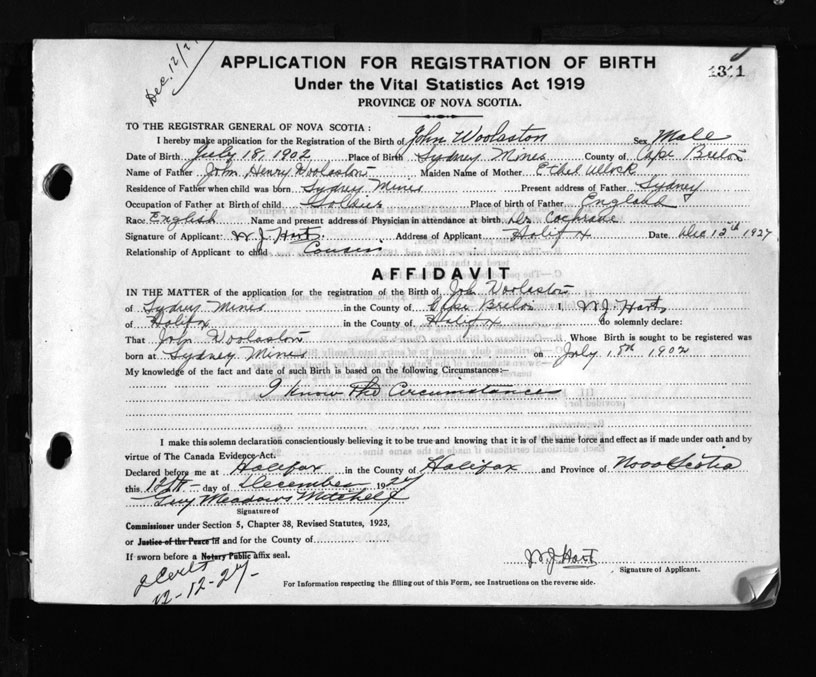 Dec. 12/27
1311
APPLICATION FOR REGISTRATION OF BIRTH
Under the Vital Statistics Act 1919
PROVINCE OF NOVA SCOTIA.
TO THE REGISTRAR GENERAL OF NOVA SCOTIA :
I hereby make application for the Registration of the Birth of John Woolaston Sex Male
Date of Birth July 18, 1902 Place of Birth Sydney Mines County of Cape Breton
Name of Father John Henry Woolaston Maiden Name of Mother Ethel
Residence of Father when child was born Sydney Mines Present address of Father Sydney
Occupation of Father at Birth of child Soldier Place of birth of Father England
Race English Name and present address of Physician in attendance at birth Dr. Cochrane
Signature of Applicant: W. J. Hart Address of Applicant Halifax Date Dec 12th 1927
Relationship of Applicant to child Cousin
AFFIDAVIT
IN THE MATTER of the application for the registration of the Birth of John Woolaston
of Sydney Mines in the County of Cape Breton I W. J. Hart
of Halifax in the County of Halifax do solemnly declare:
That John Woolaston Whose Birth is sought to be registered was
born at Sydney Mines on July 18th 1902
My knowledge of the fact and date of such Birth is based on the following Circumstances:—
I know the Circumstances
I make this solemn declaration conscientiously believing it to be true and knowing that it is of the same force and effect as if made under oath and by
virtue of The Canada Evidence Act.
Declared before me at Halifax in the County of Halifax and Province of Nova Scotia
this 12th day of December 1927
Guy Meadows Mitchell
Signature of
Commissioner under Section 5, Chapter 38, Revised Statutes, 1923,
or Justice of the Peace in and for the County of
If sworn before a Notary Public affix seal.
W. J. Hart
Signature of Applicant.
2 Certs
12-12-27-
For Information respecting the filling out of this Form, see Instructions on the reverse side.